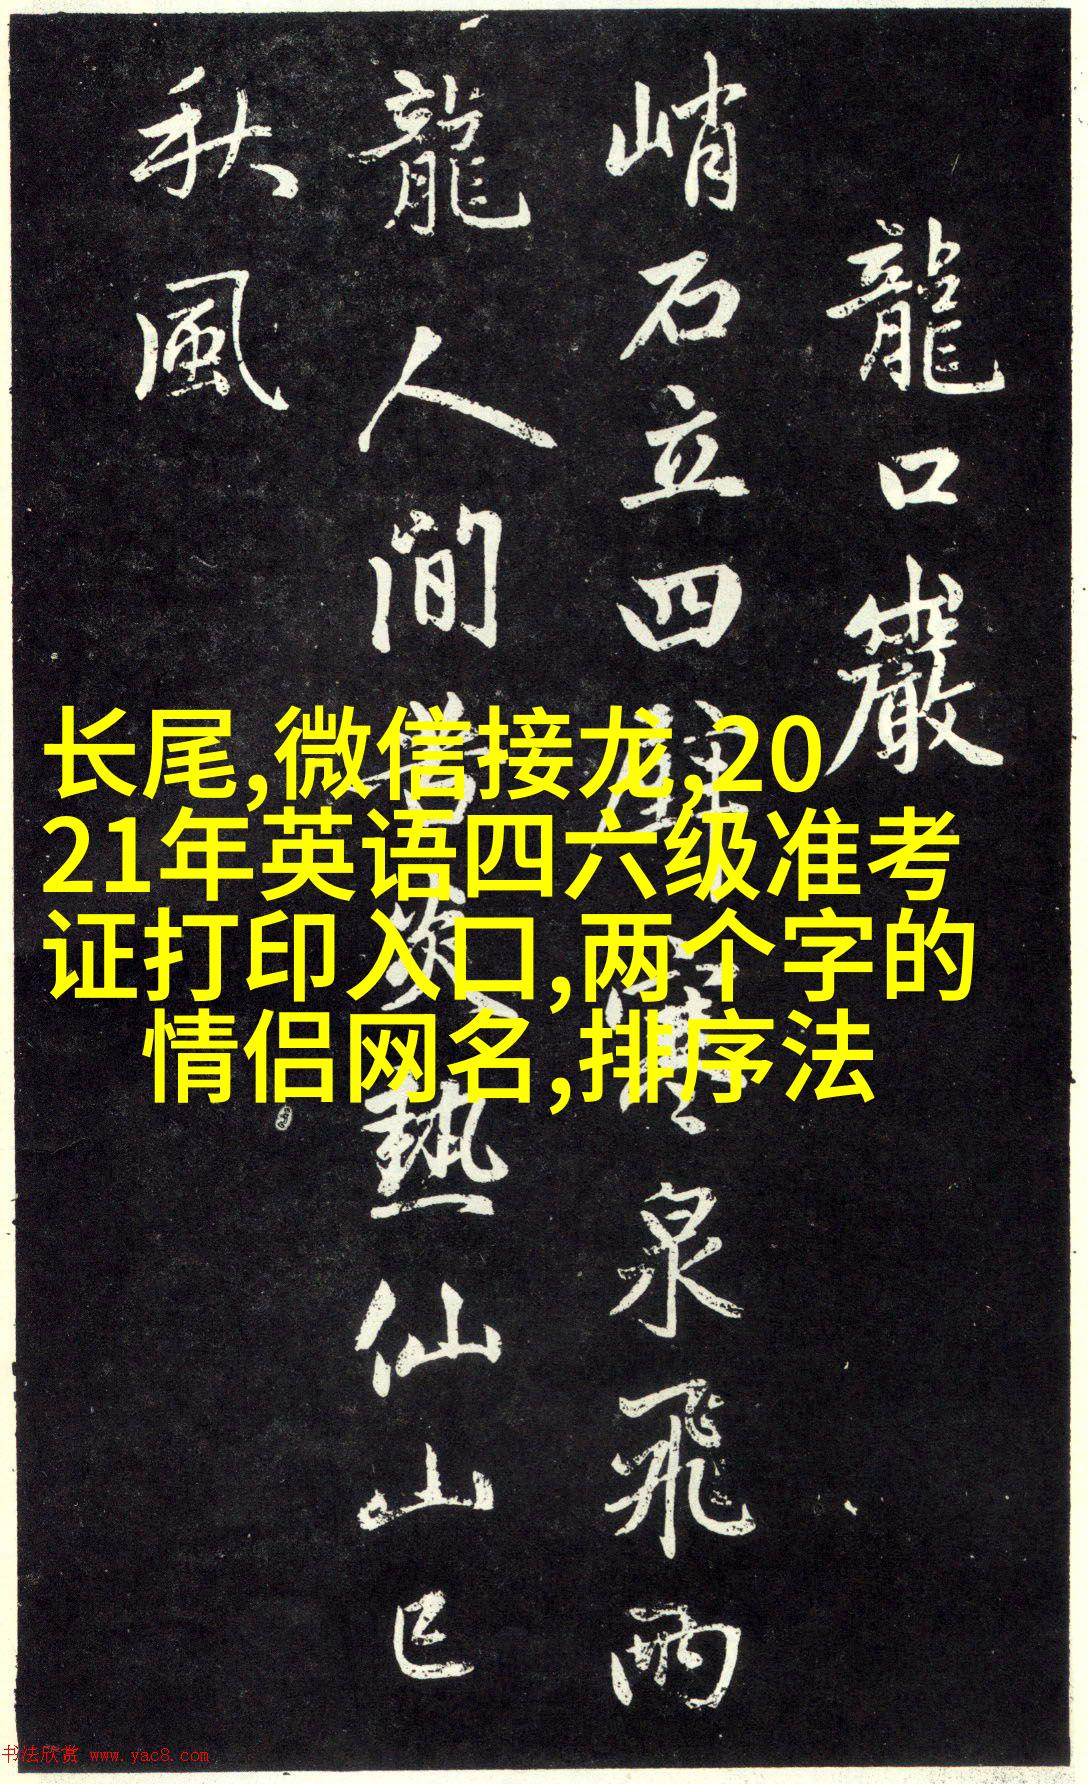 龍口巖
峭石立四壁寒泉飛兩
龍人間苦炎熱仙山已
秋風
长尾,微信接龙,20
21年英语四六级准考
证打印入口,两个字的
情侣网名,排序法
书法欣赏 www.yac8.com